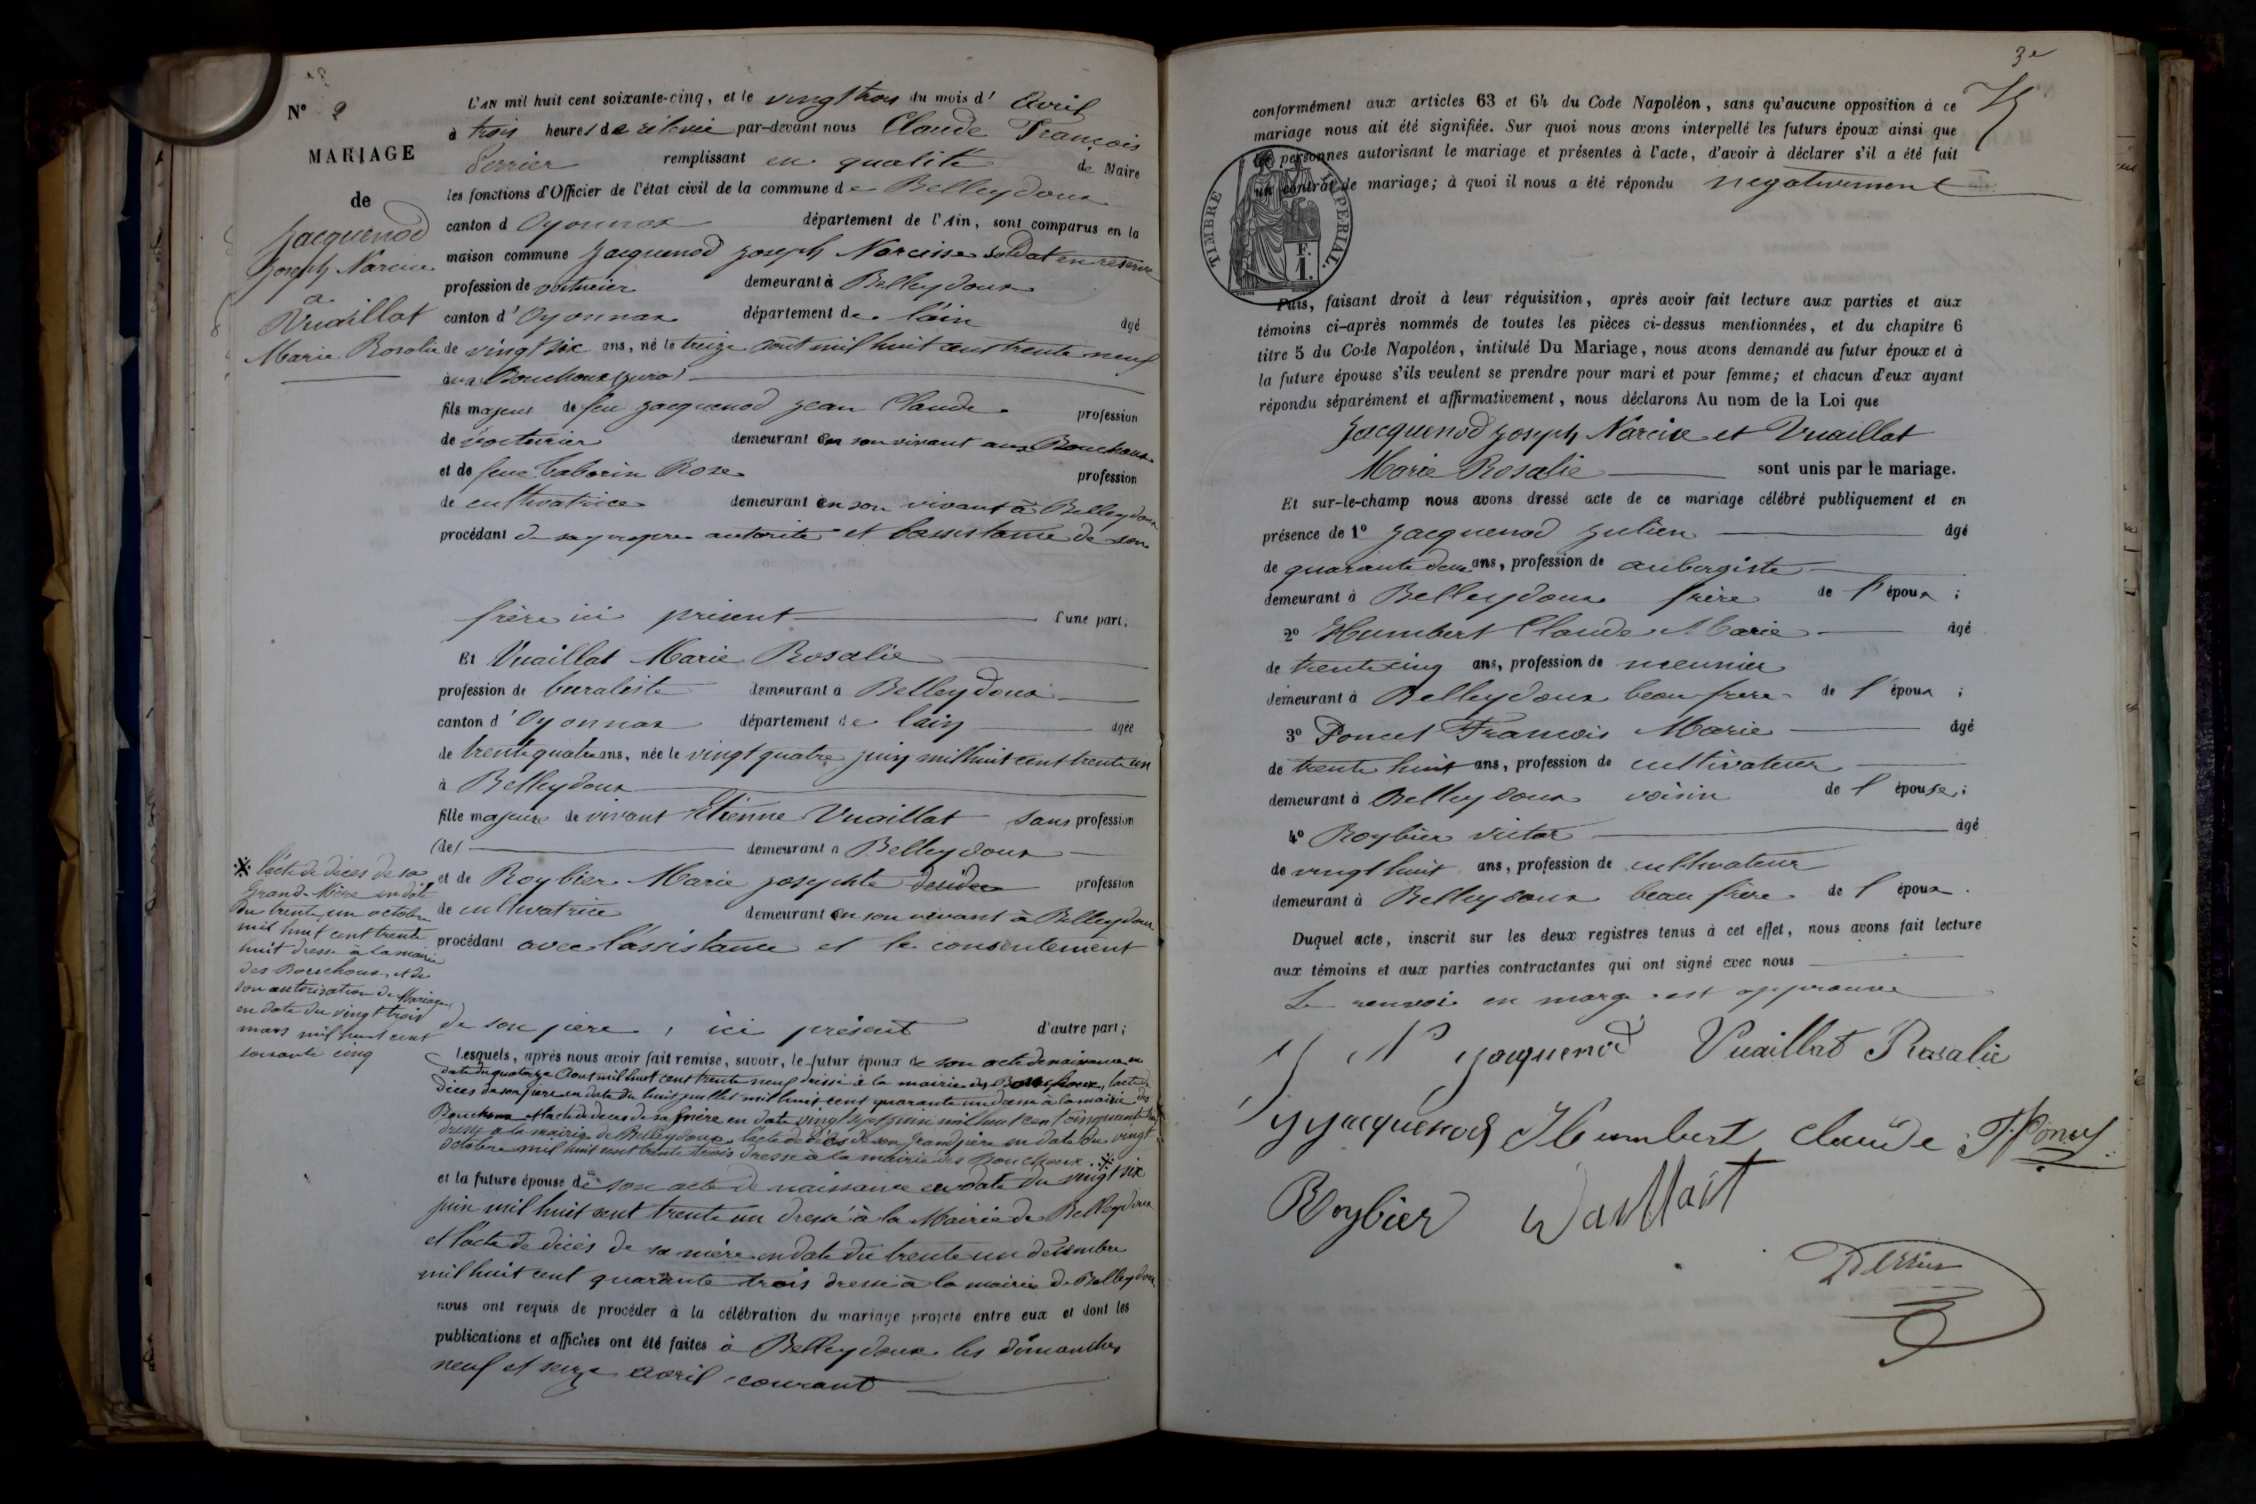 N° 2
MARIAGE
de
Jacquenod
Joseph Narcisse
a
Vuaillat
Marie Rosalie
L'AN mil huit cent soixante-cinq, et le vingt trois du mois d' Avril
à trois heures de relevée par-devant nous Claude François
Perrier remplissant en qualité de Maire
les fonctions d'Officier de l'état civil de la commune de Belleydoux
canton d Oyonnax département de l'Ain, sont comparus en la
maison commune Jacquenod Joseph Narcisse soldat en réserve
profession de voiturier demeurant à Belleydoux
canton d' Oyonnax département de l'ain âgé
de vingt six ans, né le treize aout mil huit cent trente neuf
aux Bouchoux (jura)
fils majeur de feu Jacquenod Jean Claude profession
de voiturier demeurant en son vivant aux Bouchoux
et de feue Taborin Rose profession
de cultivatrice demeurant en son vivant à Belleydoux
procédant de sa propre autorité et l'assistance de son
frère ici présent d'une part.
Et Vuaillat Marie Rosalie
profession de buraliste demeurant à Belleydoux
canton d' Oyonnax département de l'ain âgée
de trente quatre ans, née le vingt quatre juin mil huit cent trente un
à Belleydoux
fille majeure de vivant Etienne Vuaillat sans profession
(de) demeurant à Belleydoux
et de Roybier Marie josephte profession
de cultivatrice demeurant en son vivant à Belleydoux
procédant avec l'assistance et le consentement
de son père, ici présent d'autre part;
Lesquels, après nous avoir fait remise, savoir, le futur époux de son acte de naissance en
date du quatorze Aout mil huit cent trente neuf dressé à la mairie des Bouchoux, l'acte de
décès de son père en date du huit juillet mil huit cent quarante un dressé à la mairie des
Bouchoux et l'acte de décès de sa mère en date vingt sept juin mil huit cent cinquante
dressé à la mairie de Belleydoux, l'acte de décès de son grand père en date du vingt
octobre mil huit cent trente trois dressé à la mairie des Bouchoux. ※
et la future épouse de son acte de naissance en date du vingt six
juin mil huit cent trente un dressé à la Mairie de Belleydoux
et l'acte de décès de sa mère en date du trente un décembre
mil huit cent quarante trois dressé à la mairie de Belleydoux
nous ont requis de procéder à la célébration du mariage projeté entre eux et dont les
publications et affiches ont été faites à Belleydoux les dimanches
neuf et seize avril courant
※ l'acte de décès de sa
Grand-Mère en date
du trente un octobre
mil huit cent trente
huit dressé à la mairie
des Bouchoux, et de
son autorisation de Mariage
en date du vingt trois
mars mil huit cent
soixante cinq
3e
conformément aux articles 63 et 64 du Code Napoléon, sans qu'aucune opposition à ce
mariage nous ait été signifiée. Sur quoi nous avons interpellé les futurs époux ainsi que
les personnes autorisant le mariage et présentes à l'acte, d'avoir à déclarer s'il a été fait
un contrat de mariage; à quoi il nous a été répondu negativement
TIMBRE IMPERIAL.
F.
1.
Puis, faisant droit à leur réquisition, après avoir fait lecture aux parties et aux
témoins ci-après nommés de toutes les pièces ci-dessus mentionnées, et du chapitre 6
titre 5 du Code Napoléon, intitulé Du Mariage, nous avons demandé au futur époux et à
la future épouse s'ils veulent se prendre pour mari et pour femme; et chacun d'eux ayant
répondu séparément et affirmativement, nous déclarons Au nom de la Loi que
Jacquenod Joseph Narcisse et Vuaillat
Marie Rosalie sont unis par le mariage.
Et sur-le-champ nous avons dressé acte de ce mariage célébré publiquement et en
présence de 1° Jacquenod Julien âgé
de quarante deux ans, profession de aubergiste
demeurant à Belleydoux frère de l'époux;
2° Humbert Claude Marie âgé
de trente cinq ans, profession de meunier
demeurant à Belleydoux beau frère de l'époux;
3° Poncet François Marie âgé
de trente huit ans, profession de cultivateur
demeurant à Belleydoux voisin de l'épouse;
4° Roybier victor âgé
de vingt huit ans, profession de cultivateur
demeurant à Belleydoux beau frère de l'époux.
Duquel acte, inscrit sur les deux registres tenus à cet effet, nous avons fait lecture
aux témoins et aux parties contractantes qui ont signé avec nous
Le renvoi en marge est approuvé
J N Jacquenod Vuaillat Rosalie
JJ Jacquenod Humbert Claude F. Poncet
Roybier Vuaillat
Perrier